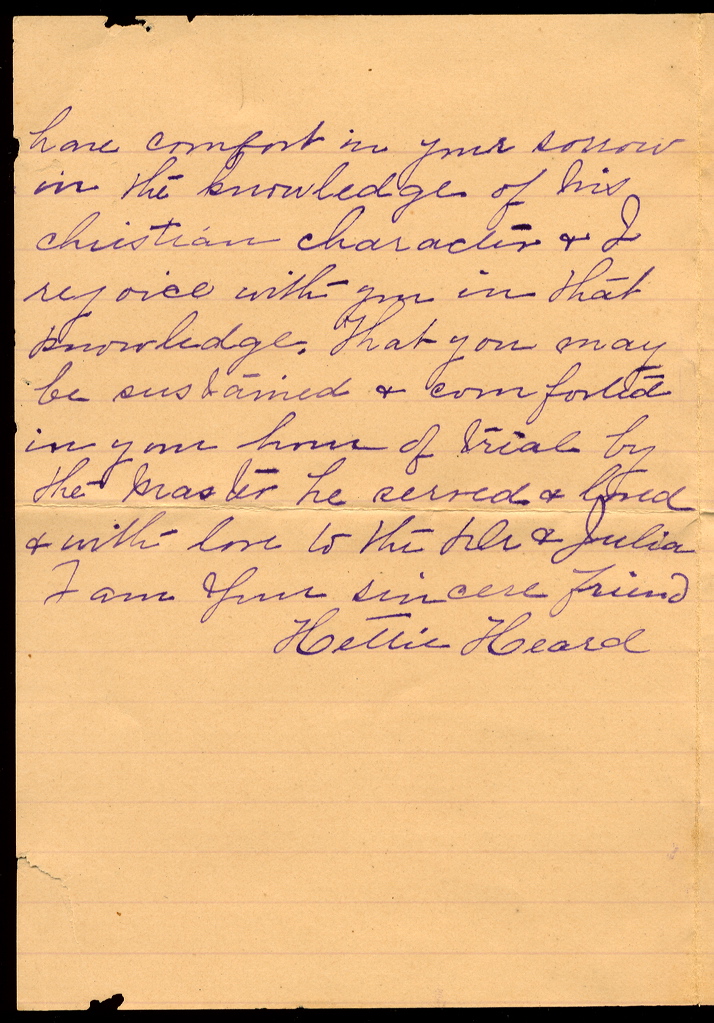 have comfort in your sorrow
in the knowledge of his
christian character & I
rejoice with you in that
knowledge. That you may
be sustained & comforted
in your hour of trial by
the Master he served & loved
& with love to the Dr & Julia
I am Your sincere friend
Hettie Heard